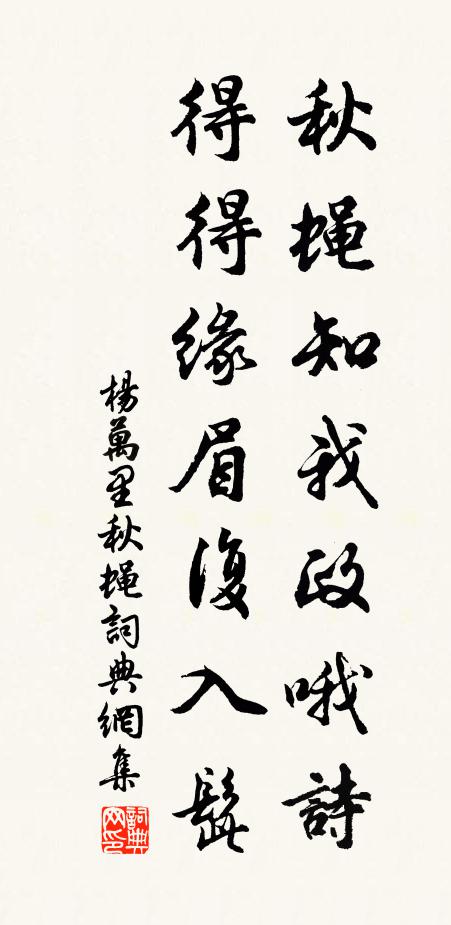 秋蝇知我政哦詩
得得緣眉復入髭
楊萬里秋蝇詞典網集
詞典網印